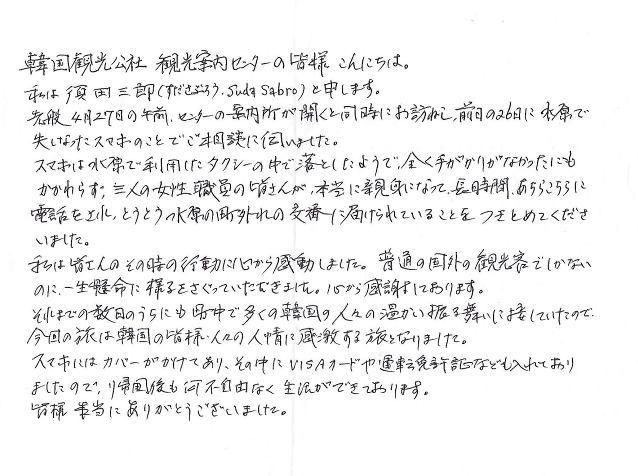 韓国観光公社 観光案内センターの皆様 こんにちは。
私は須田三郎(すださぶろう、Suda Sabro)と申します。
先般4月27日の午前、センターの案内所が開くと同時にお訪ねし、前日の26日に水原で
失しなったスマホのことでご相談に伺いました。
スマホは水原で利用したタクシーの中で落としたようで、全く手がかりがなかったにも
かかわらず、三人の女性職員の皆さんが、本当に親身になって、長時間、あちらこちらに
電話をされ、とうとう水原の町外れの交番に届けられていることをつきとめてくださ
いました。
私は皆さんのその時の行動に心から感動しました。普通の国外の観光客でしかない
のに、一生懸命に様子をさぐっていただきました。心から感謝しております。
それまでの数日のうちにも街中で多くの韓国の人々の温かい振る舞いに接していたので、
今回の旅は韓国の皆様・人々の人情に感激する旅となりました。
スマホにはカバーがかけてあり、その中にVISAカードや運転免許証なども入れており
ましたので、帰国後も何不自由なく生活ができております。
皆様 本当にありがとうございました。